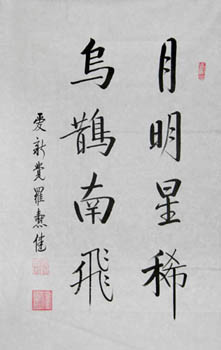 月明星稀
烏鵲南飛
愛新覺羅